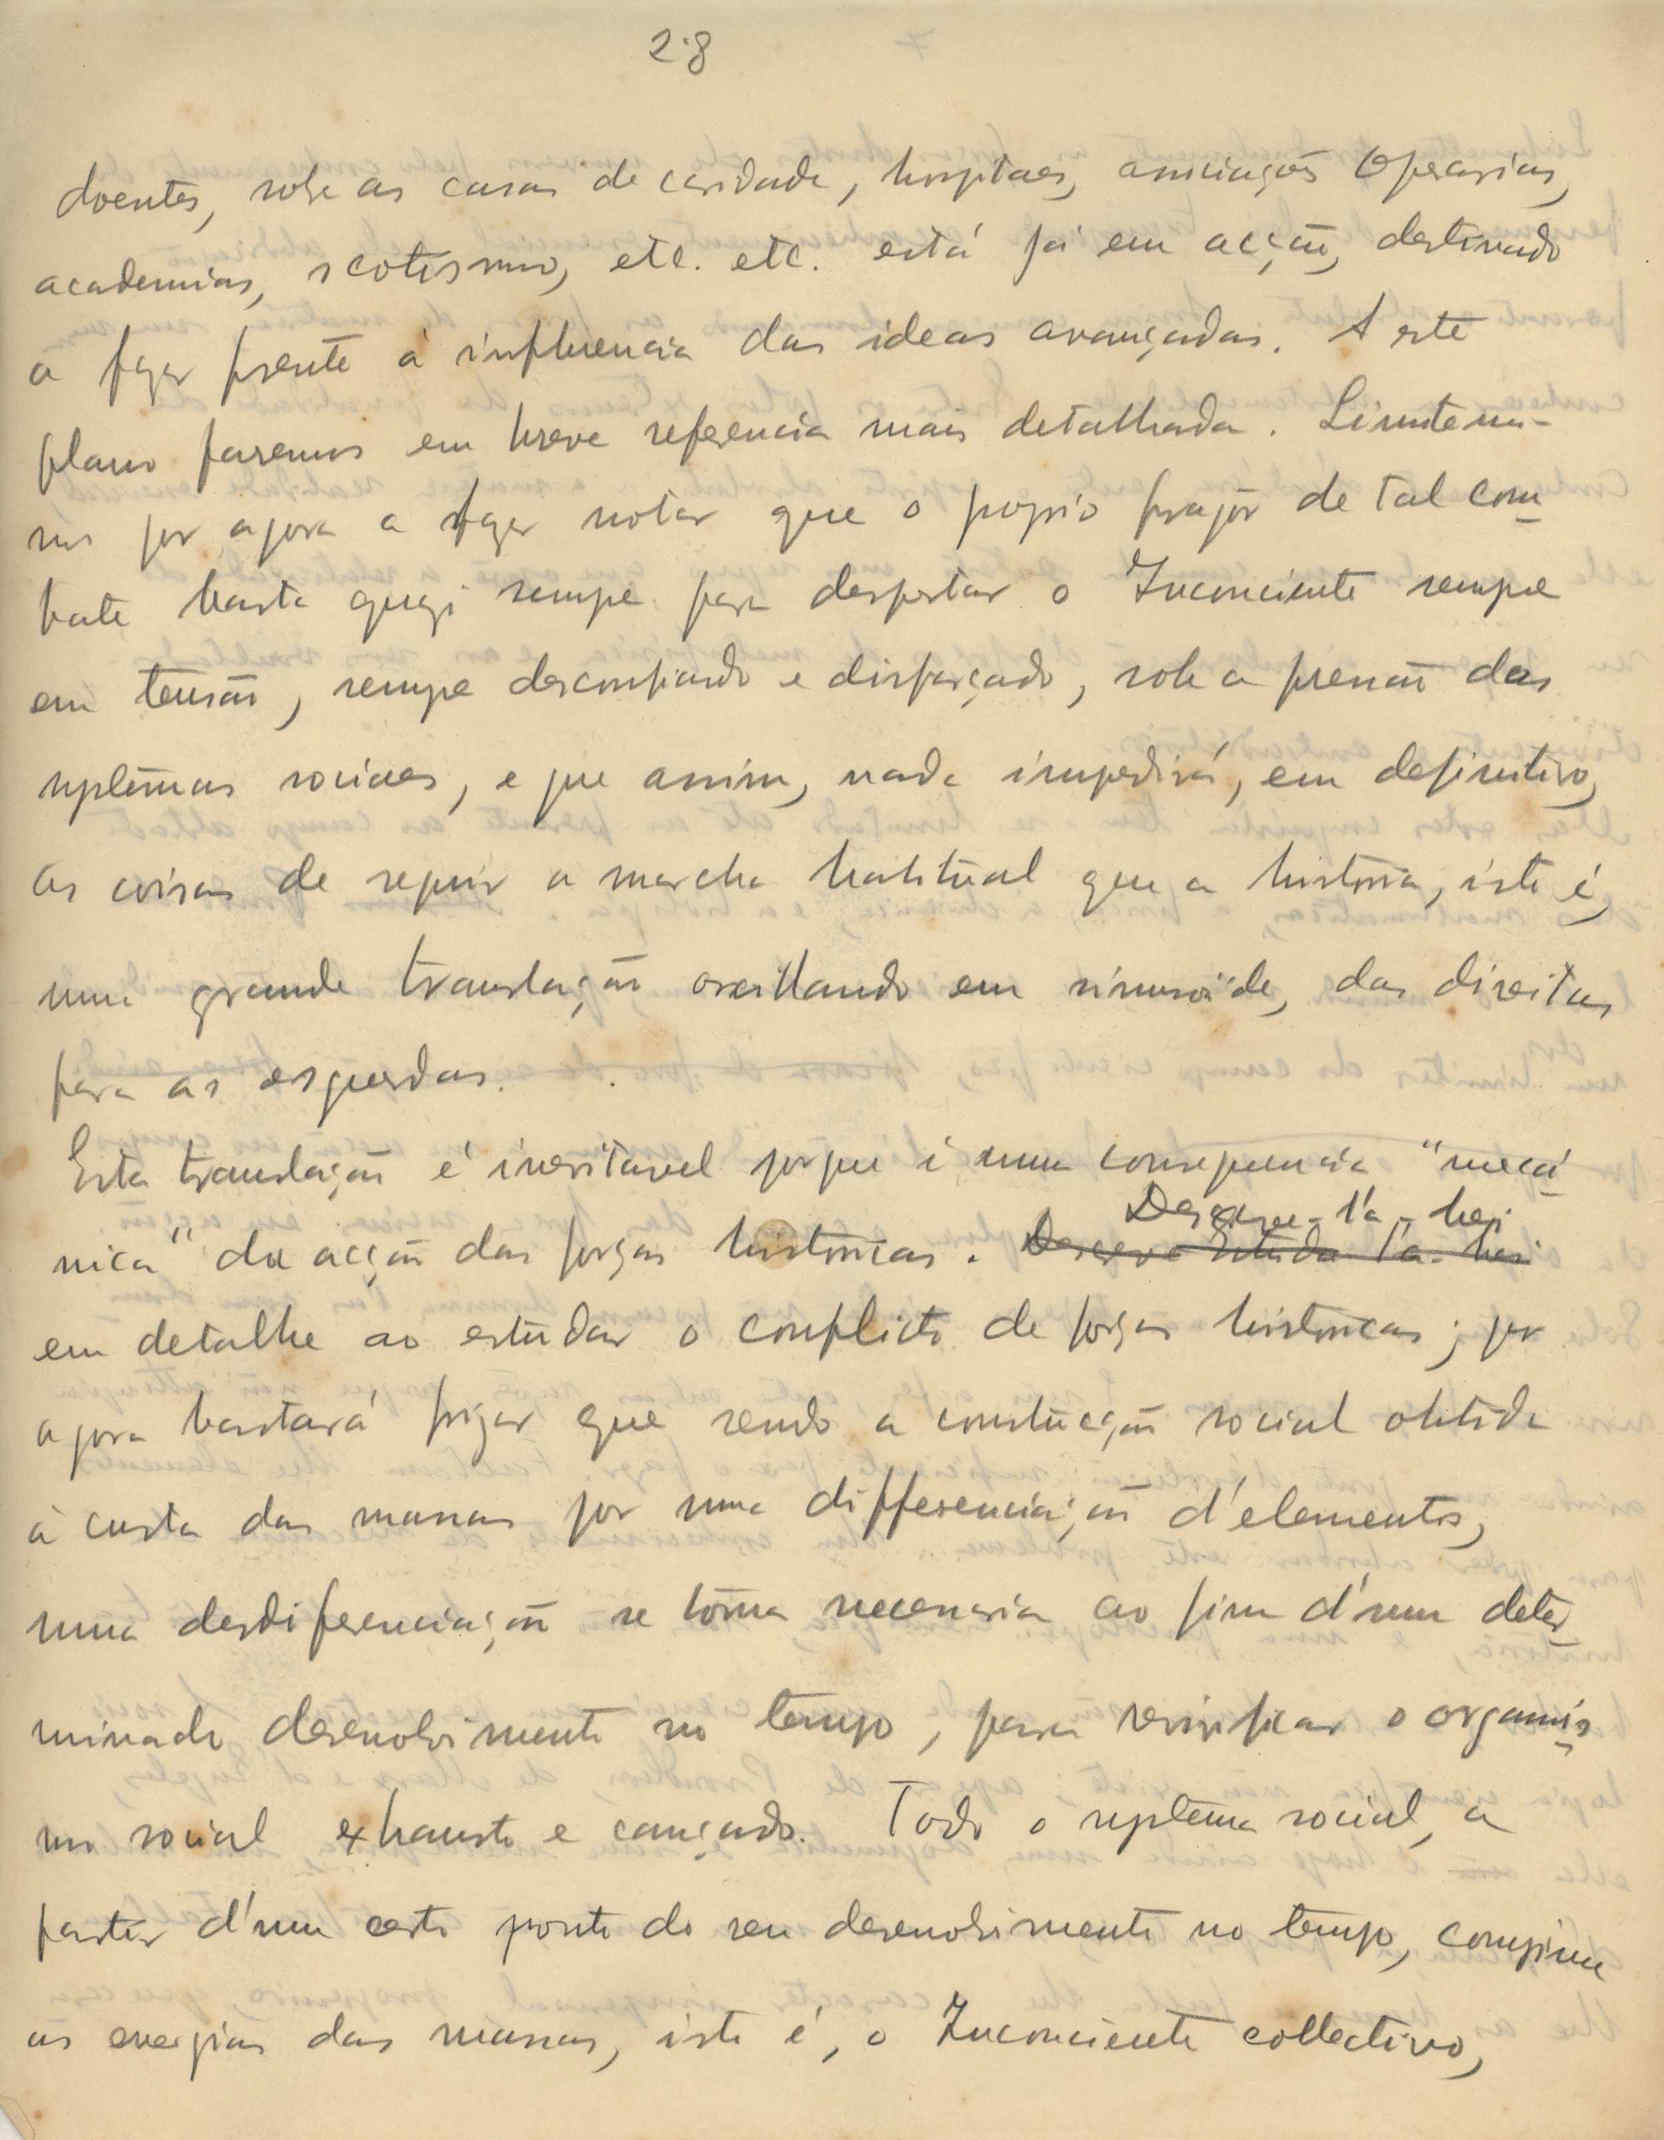 28
doentes, sobre as casas de caridade, hospitaes, associações Operarias,
academias, scotismo, etc. etc. está já em acção, destinado
a fazer frente á influencia das ideas avançadas. A este
plano faremos em breve referencia mais detalhada. Limitemo-
nos por agora a fazer notar que o proprio frajor de tal com
bate basta quazi sempre para despertar o Inconciente sempre
em tensão, sempre desconfiando e disfarçado, sob a pressão dos
systemas sociaes, e que assim, nada impedirá, em definitivo,
as coisas de seguir a marcha habitual que a historia, isto é,
uma grande translação oscillando em sinusoide, das direitas
para as esquerdas.
Esta translação é inevitavel porque é uma consequencia "mecâ
nica" da acção das forças historicas. Descreve-l'a-hei
em detalhe ao estudar o conflicto de forças historicas; por
agora bastará frizar que sendo a construcção social obtida
á custa das massas por uma differenciação d'elementos,
uma desdiferenciação se tórna necessaria ao fim d'um deter
minado desenvolvimento no tempo, para revivificar o organis
mo social exhausto e cançado. Todo o systema social, a
partir d'um certo ponto do seu desenvolvimento no tempo, comprime
as energias das massas, isto é, o Inconciente collectivo,